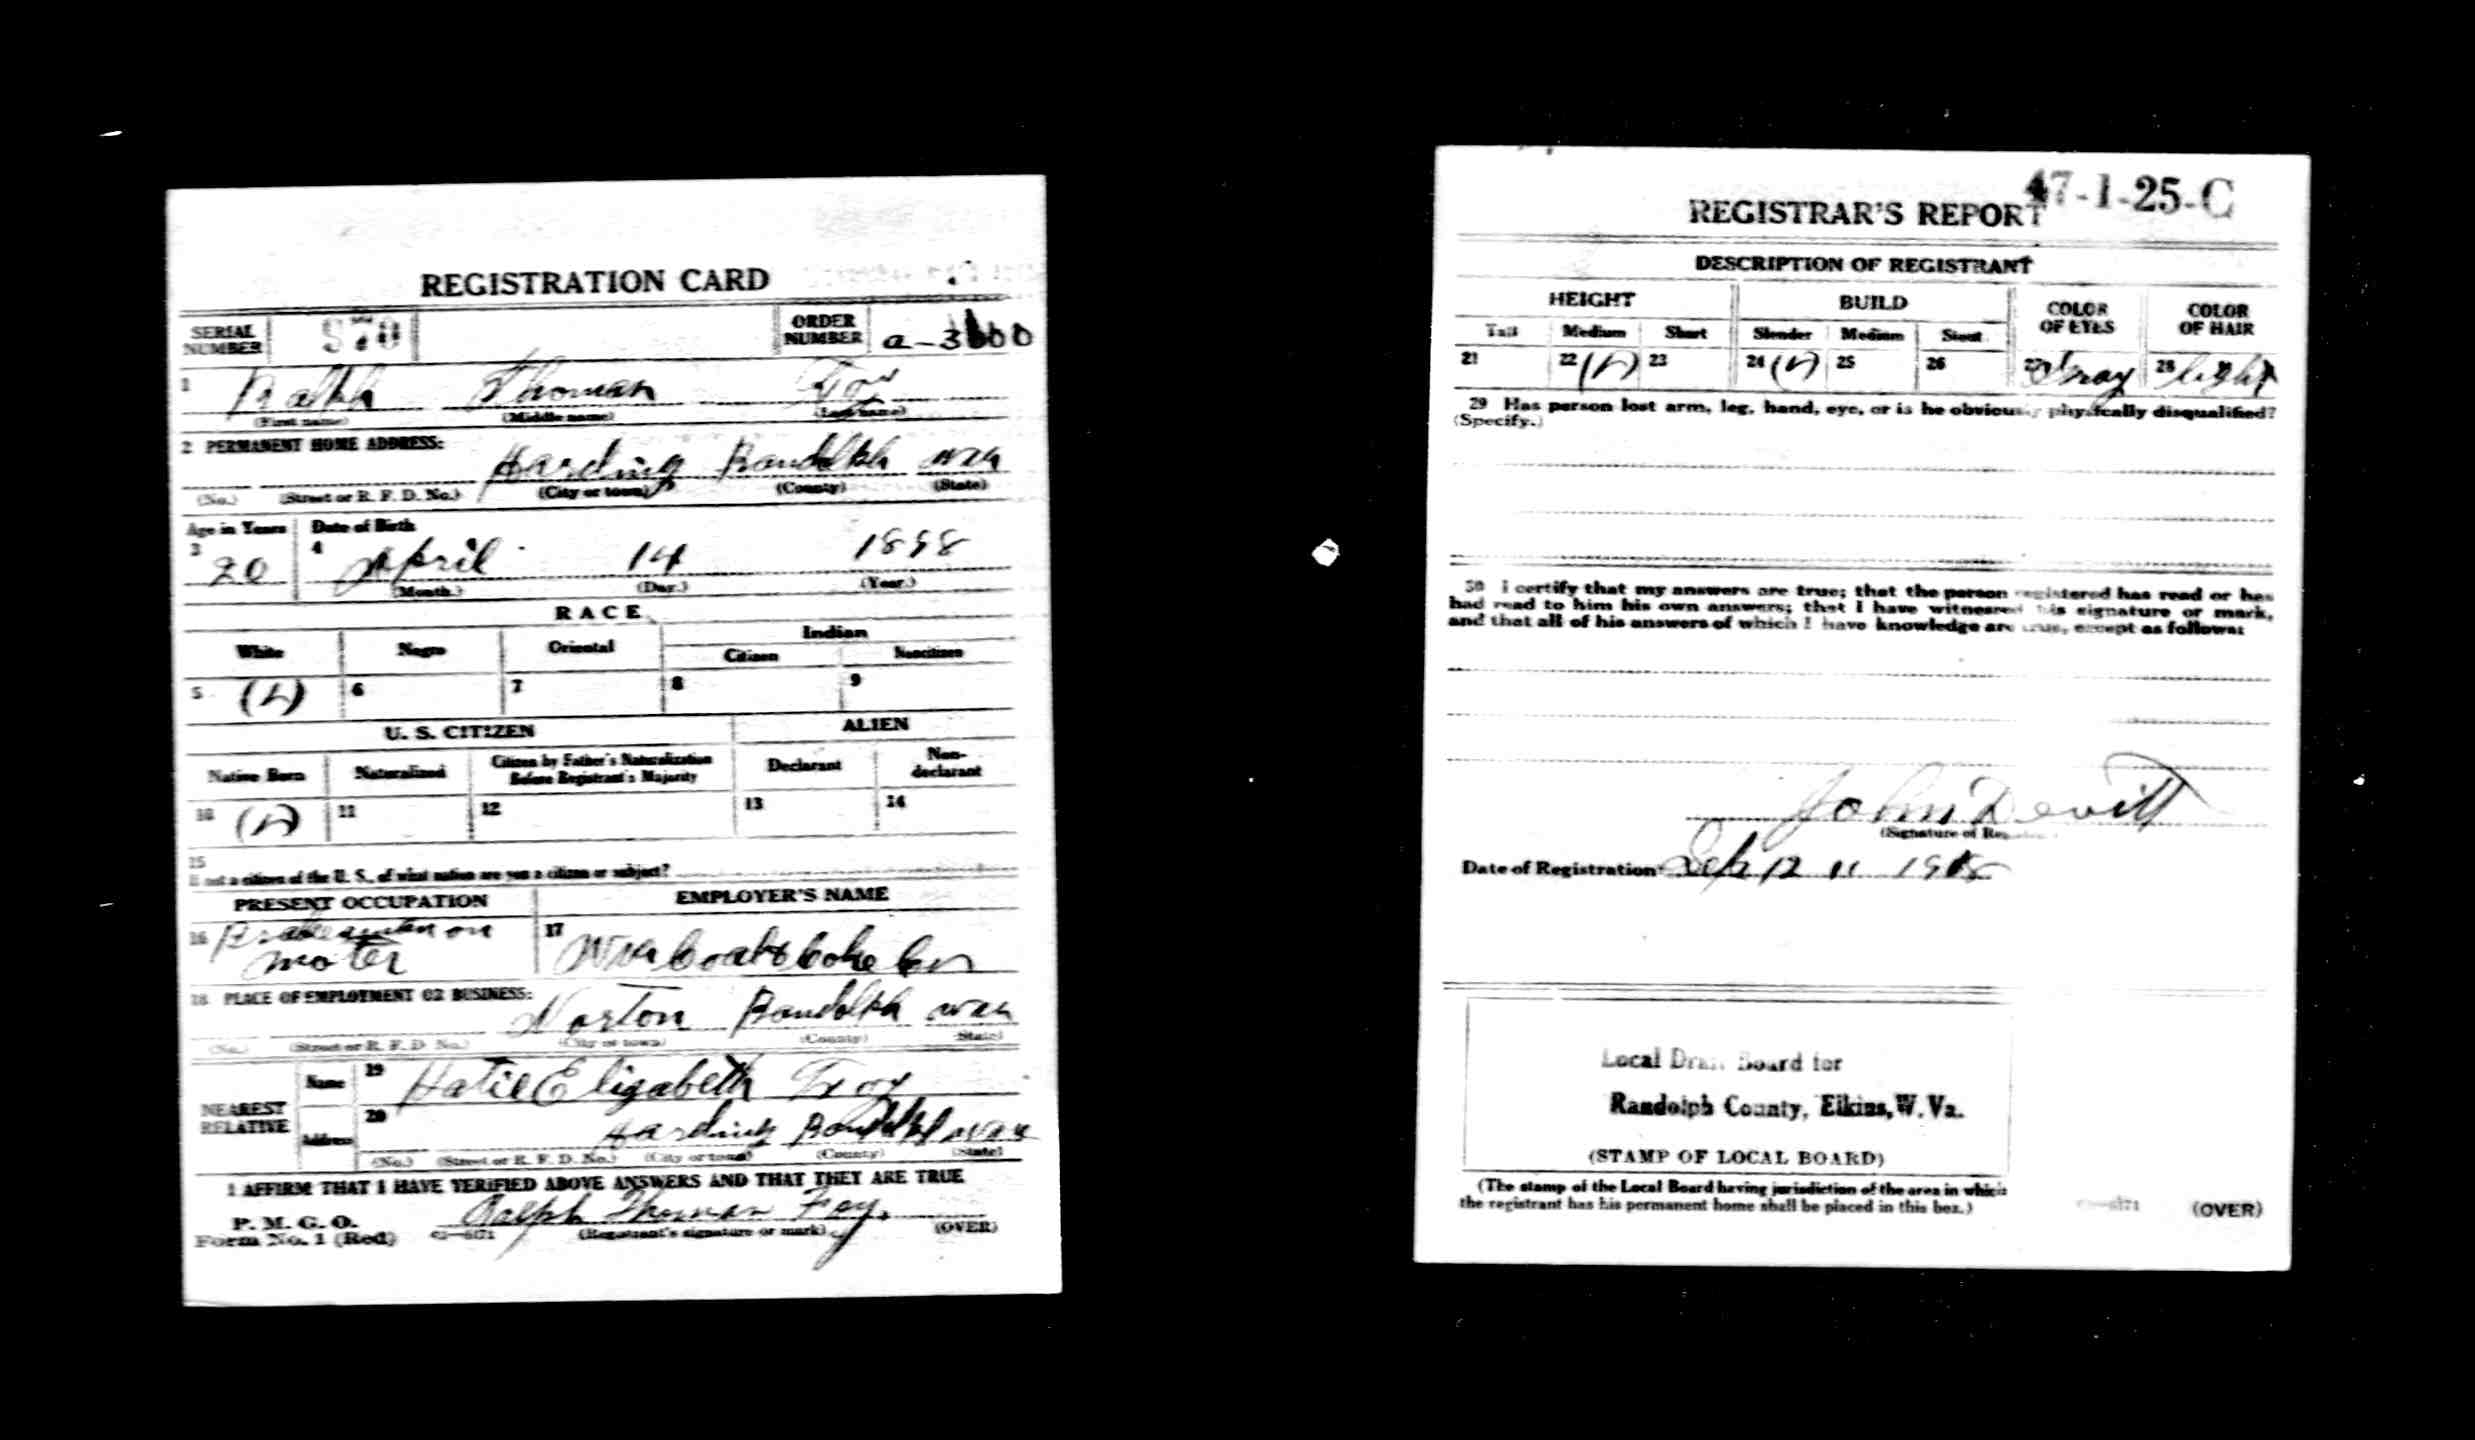 REGISTRATION CARD
SERIAL NUMBER 870 ORDER NUMBER a-3600
1 Ralph Thomas Foy
(First name) (Middle name) (Last name)
2 PERMANENT HOME ADDRESS:
Harding Randolph WVa
(No.) (Street or R. F. D. No.) (City or town) (County) (State)
Age in Years Date of Birth
3 20 4 April 14 1898
(Month.) (Day.) (Year.)
RACE
White Negro Oriental Indian
Citizen Noncitizen
5 6 7 8 9
U. S. CITIZEN ALIEN
Native Born Naturalized Citizen by Father's Naturalization Before Registrant's Majority Declarant Non-declarant
10 11 12 13 14
15
If not a citizen of the U. S., of what nation are you a citizen or subject?
PRESENT OCCUPATION EMPLOYER'S NAME
16 Brakesman on 17
moter WVa Coal & Coke Co
18 PLACE OF EMPLOYMENT OR BUSINESS:
Norton Randolph WVa
(No.) (Street or R. F. D. No.) (City or town) (County) (State)
NEAREST RELATIVE
Name 19 Hatie Elizabeth Foy
Address 20 Harding Randolph WVa
(No.) (Street or R. F. D. No.) (City or town) (County) (State)
I AFFIRM THAT I HAVE VERIFIED ABOVE ANSWERS AND THAT THEY ARE TRUE
P. M. G. O.
Form No. 1 (Red) Ralph Thomas Foy.
(Registrant's signature or mark) (OVER)
47-1-25-C
REGISTRAR'S REPORT
DESCRIPTION OF REGISTRANT
HEIGHT BUILD COLOR OF EYES COLOR OF HAIR
Tall Medium Short Slender Medium Stout
21 22 23 24 25 26 27 Gray 28 light
29 Has person lost arm, leg, hand, eye, or is he obviously physically disqualified?
(Specify.)
30 I certify that my answers are true; that the person registered has read or has
had read to him his own answers; that I have witnessed his signature or mark,
and that all of his answers of which I have knowledge are true, except as follows:
John Devitt
(Signature of Reg
Date of Registration Sep 12 " 1918
Local Draft Board for
Randolph County, Elkins, W. Va.
(STAMP OF LOCAL BOARD)
(The stamp of the Local Board having jurisdiction of the area in which
the registrant has his permanent home shall be placed in this box.)
(OVER)